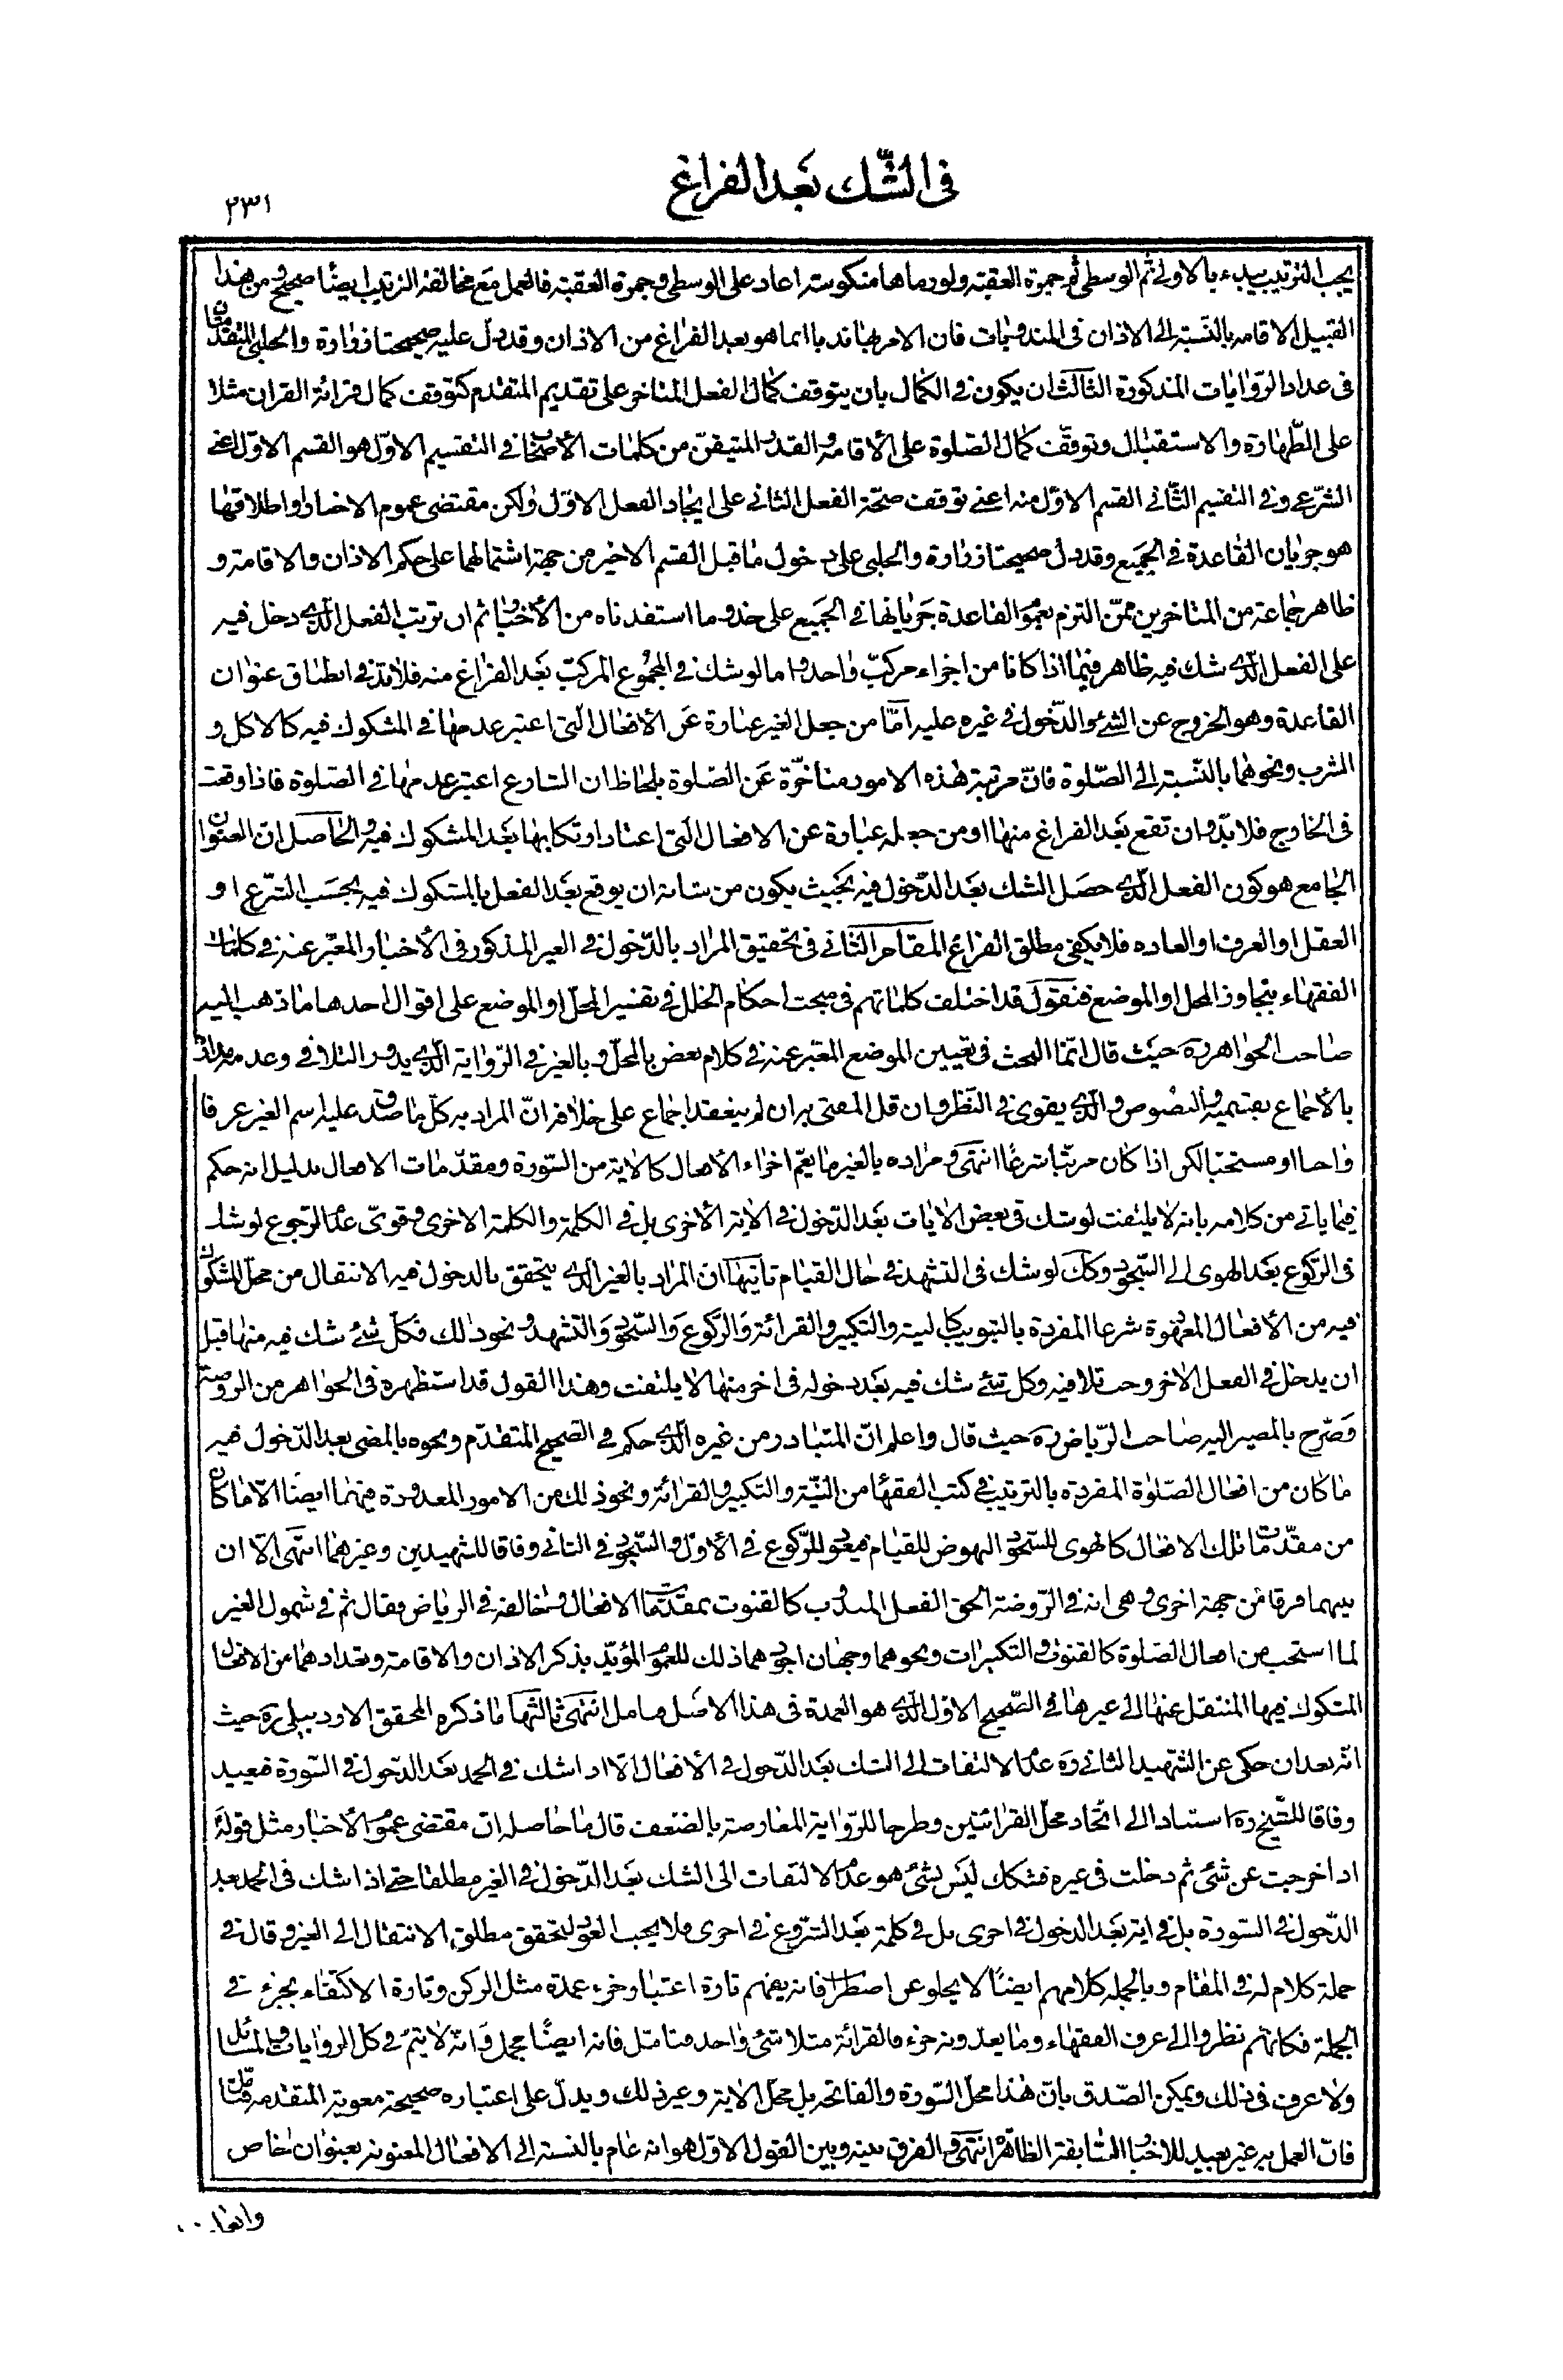 فى الشّك بعد الفراغ
٢٣١
يجب الترتيب يبدء بالاولى ثم الوسطى ثم جمرة العقبة ولو رماها منكوسة اعاد على الوسطى و جمرة العقبة فالعمل مع مخالفة الترتيب ايضًا صحيح و من هذا
القبيل الاقامه بالنّسبة الى الاذان فى المندوبات فان الامر بها ندبا انما هو بعد الفراغ من الاذان و قد دلّ عليه صحيحتا زرارة و الحلبى المتقدمتان
فى عداد الرّوايات المذكورة الثّالث ان يكون فى الكمال بان يتوقف كمال الفعل المتاخر على تقديم المتقدم كتوقف كمال قرائة القران مثلا
على الطّهارة و الاستقبال و توقّف كمال الصّلوة على الأقامة و القدر المتيقّن من كلمات الأصحاب فى التقسيم الاوّل هو القسم الاوّل اعنى
الشّرعى و فى التقسيم الثّانى القسم الاوّل منه اعنى توقف صحّة الفعل الثانى على ايجاد الفعل الاوّل و لكن مقتضى عموم الاخبار و اطلاقها
هو جريان القاعدة فى الجميع و قد دل صحيحتا زرارة و الحلبى على دخول ما قبل القسم الاخير من جهة اشتمالهما على حكم الاذان و الاقامة و
ظاهر جماعة من المتاخرين ممّن التزم بعموم القاعدة جريانها فى الجميع على حذو ما استفدناه من الأخبار ثم ان ترتب الفعل الّذى دخل فيه
على الفعل الّذى شك فيه ظاهر فيما اذا كانا من اجزاء مركّب واحد و اما لو شك فى المجموع المركّب بعد الفراغ منه فلا بدّ فى انطباق عنوان
القاعدة و هو الخروج عن الشئ و الدّخول فى غيره عليه امّا من جعل الغير عبارة عن الأفعال الّتى اعتبر عدمها فى المشكوك فيه كالاكل و
الشرب و نحوهما بالنّسبة الى الصّلوة فانّ مرتبة هذه الامور متأخّرة عن الصّلوة بلحاظ ان الشارع اعتبر عدمها فى الصّلوة فاذا وقعت
فى الخارج فلا بدّ و ان تقع بعد الفراغ منها او من جعله عبارة عن الافعال الّتى اعتاد ارتكابها بعد المشكوك فيه و الحاصل انّ العنوان
الجامع هو كون الفعل الّذى حصل الشك بعد الدّخول فيه بحيث يكون من شانه ان يوقع بعد الفعل المشكوك فيه بحسب الشّرع او
العقل او العرف او العاده فلا يكفى مطلق الفراغ المقام الثّانى فى تحقيق المراد بالدّخول فى الغير المذكور فى الأخبار و المعبّر عنه فى كلمات
الفقهاء بتجاوز المحل او الموضع فنقول قد اختلف كلماتهم فى مبحث احكام الخلل فى تفسير المحلّ او الموضع على اقوال احدها ما ذهب اليه
صاحب الجواهر ره حيث قال انّما البحث فى تعيين الموضع المعبّر عنه فى كلام بعض بالمحلّ و بالغير فى الرّواية الّذى يدور التلافى و عدمه مداره
بالأجماع بقسميه و النّصوص و الّذى يقوى فى النّظر و ان قل المفتى به ان لم ينعقد اجماع على خلافه انّ المراد به كلّ ما صدق عليه اسم الغير عرفا
واجبا او مستحبّا لكن اذا كان مرتّبا شرعًا انتهى و مراده بالغير ما يعمّ اجزاء الأفعال كالاية من السّورة و مقدّمات الافعال بدليل انه حكم
فيما ياتى من كلامه بانه لا يلتفت لو شك فى بعض الايات بعد الدّخول فى الاية الأخرى بل فى الكلمة و الكلمة الاخرى و قوىّ عدم الرّجوع لو شك
فى الرّكوع بعد الهوى الى السّجود و كك لو شك فى التشهد فى حال القيام ثانيها انّ المراد بالغير الّذى يتحقق بالدخول فيه الانتقال من محلّ المشكوك
فيه من الأفعال المعهودة شرعا المفردة بالتبويب كالنية و التكبير و القرائة و الرّكوع و السّجود و التشهد و نحو ذلك فكلّ شئ شك فيه منها قبل
ان يدخل فى الفعل الأخر وجب تلافيه و كل شئ شك فيه بعد دخوله فى اخر منها لا يلتفت و هذا القول قد استظهره فى الجواهر من الروضة
و صرّح بالمصير اليه صاحب الرّياض ره حيث قال و اعلم انّ المتبادر من غيره الّذى حكم فى الصّحيح المتقدّم و نحوه بالمضى بعد الدّخول فيه
ما كان من افعال الصّلوة المفردة بالترتيب فى كتب الفقهاء من النّيّة و التكبير و القرائة و نحو ذلك من الامور المعدودة فيهما ايضًا الّا ما كان
من مقدّمات تلك الافعال كالهوى للسّجود و النهوض للقيام فيعود للرّكوع فى الأوّل و السّجود فى الثانى وفاقا للشهيدين و غيرهما انتهى الّا ان
بينهما فرقا من جهة اخرى و هى انه فى الرّوضة الحق الفعل المندوب كالقنوت بمقدّمات الافعال و خالفه فى الرياض فقال ثم فى شمول الغير
لما استحب من افعال الصّلوة كالقنوت و التكبيرات و نحوهما وجهان اجودهما ذلك للعموم المؤيّد بذكر الاذان و الاقامة و تعدادهما من الافعال
المشكوك فيها المنتقل عنها الى غيرها فى الصّحيح الاوّل الّذى هو العمدة فى هذا الاصل فتامل انتهى ثالثها ما ذكره المحقق الاردبيلى ره حيث
انّه بعد ان حكى عن الشّهيد الثانى ره عدم الالتفات الى الشك بعد الدّخول فى الأفعال الّا اذا شك فى الحمد بعد الدّخول فى السّورة فيعيد
وفاقا للشّيخ ره استنادا الى اتّحاد محلّ القرائتين و طرحا للرّواية المعارضة بالضعف قال ما حاصله انّ مقتضى عموم الأخبار مثل قوله ع
اذا خرجت عن شئ ثم دخلت فى غيره فشكك ليس بشئ هو عدم الالتفات الى الشك بعد الدّخول فى الغير مطلقا حتى اذا شك فى الحمد بعد
الدّخول فى السّورة بل فى اية بعد الدخول فى اخرى بل فى كلمة بعد الشّروع فى اخرى فلا يجب العود لتحقق مطلق الانتقال الى الغير و قال فى
جملة كلام له فى المقام و بالجملة كلامهم ايضًا لا يخلو عن اضطراب فانه يفهم تارة اعتبار جزء عمدة مثل الركن و تارة الاكتفاء بجزء فى
الجملة فكانهم نظروا الى عرف الفقهاء و ما يعدّونه جزء فالقرائة مثلا شئ واحد فتامّل فانه ايضًا مجمل و انّه لا يتمّ فى كلّ الروايات و المسائل
و لا عرف فى ذلك و يمكن الصّدق بانّ هذا محلّ السّورة و الفاتحه بل محلّ الاية و غير ذلك و يدلّ على اعتباره صحيحة معوية المتقدمه فتامّل
فانّ العمل به غير بعيد للاخبار السّابقة الظاهرة انتهى و الفرق بينه و بين القول الاوّل هو انه عام بالنسبة الى الافعال المعنونه بعنوان خاص